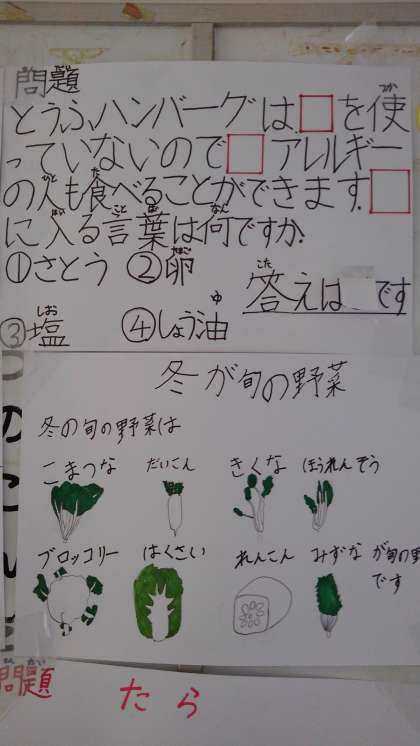 問題
とうふハンバーグは□を使
っていないので□アレルギー
の人も食べることができます。□
に入る言葉は何ですか。
①さとう ②卵
答えは です
③塩 ④しょう油
冬が旬の野菜
冬の旬の野菜は
こまつな だいこん きくな ほうれんそう
ブロッコリー はくさい れんこん みずな が旬の野
です
問題
たら